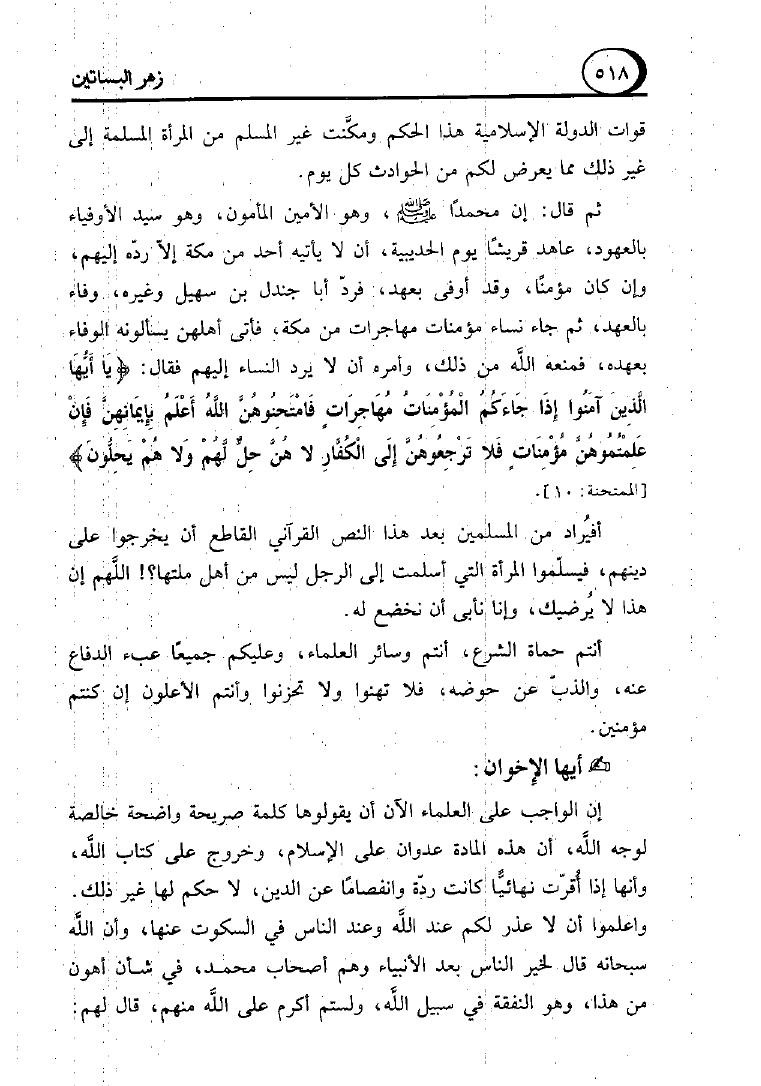 ٥١٨
زهر البساتين
قوات الدولة الإسلامية هذا الحكم ومكَّنت غير المسلم من المرأة المسلمة إلى
غير ذلك مما يعرض لكم من الحوادث كل يوم.
ثم قال: إن محمدًا ﷺ، وهو الأمين المأمون، وهو سيد الأوفياء
بالعهود، عاهد قريشًا يوم الحديبية، أن لا يأتيه أحد من مكة إلاّ ردّه إليهم،
وإن كان مؤمنًا، وقد أوفى بعهد، فردّ أبا جندل بن سهيل وغيره، وفاء
بالعهد، ثم جاء نساء مؤمنات مهاجرات من مكة، فأتى أهلهن يسألونه الوفاء
بعهده، فمنعه اللَّه من ذلك، وأمره أن لا يرد النساء إليهم فقال: ﴿يَا أَيُّهَا
الَّذِينَ آمَنُوا إِذَا جَاءَكُمُ الْمُؤْمِنَاتُ مُهَاجِرَاتٍ فَامْتَحِنُوهُنَّ اللَّهُ أَعْلَمُ بِإِيمَانِهِنَّ فَإِنْ
عَلِمْتُمُوهُنَّ مُؤْمِنَاتٍ فَلَا تَرْجِعُوهُنَّ إِلَى الْكُفَّارِ لَا هُنَّ حِلٌّ لَّهُمْ وَلَا هُمْ يَحِلُّونَ﴾
[الممتحنة: ١٠].
أفيُراد من المسلمين بعد هذا النص القرآني القاطع أن يخرجوا على
دينهم، فيسلّموا المرأة التي أسلمت إلى الرجل ليس من أهل ملتها؟! اللَّهم إن
هذا لا يُرضيك، وإنا نأبى أن نخضع له.
أنتم حماة الشرع، أنتم وسائر العلماء، وعليكم جميعًا عبء الدفاع
عنه، والذبّ عن حوضه، فلا تهنوا ولا تحزنوا وأنتم الأعلون إن كنتم
مؤمنين.
✍ أيها الإخوان:
إن الواجب على العلماء الآن أن يقولوها كلمة صريحة واضحة خالصة
لوجه اللَّه، أن هذه المادة عدوان على الإسلام، وخروج على كتاب اللَّه،
وأنها إذا أُقرّت نهائيًّا كانت ردّة وانفصامًا عن الدين، لا حكم لها غير ذلك.
واعلموا أن لا عذر لكم عند اللَّه وعند الناس في السكوت عنها، وأن اللَّه
سبحانه قال لخير الناس بعد الأنبياء وهم أصحاب محمد، في شأن أهون
من هذا، وهو النفقة في سبيل اللَّه، ولستم أكرم على اللَّه منهم، قال لهم: